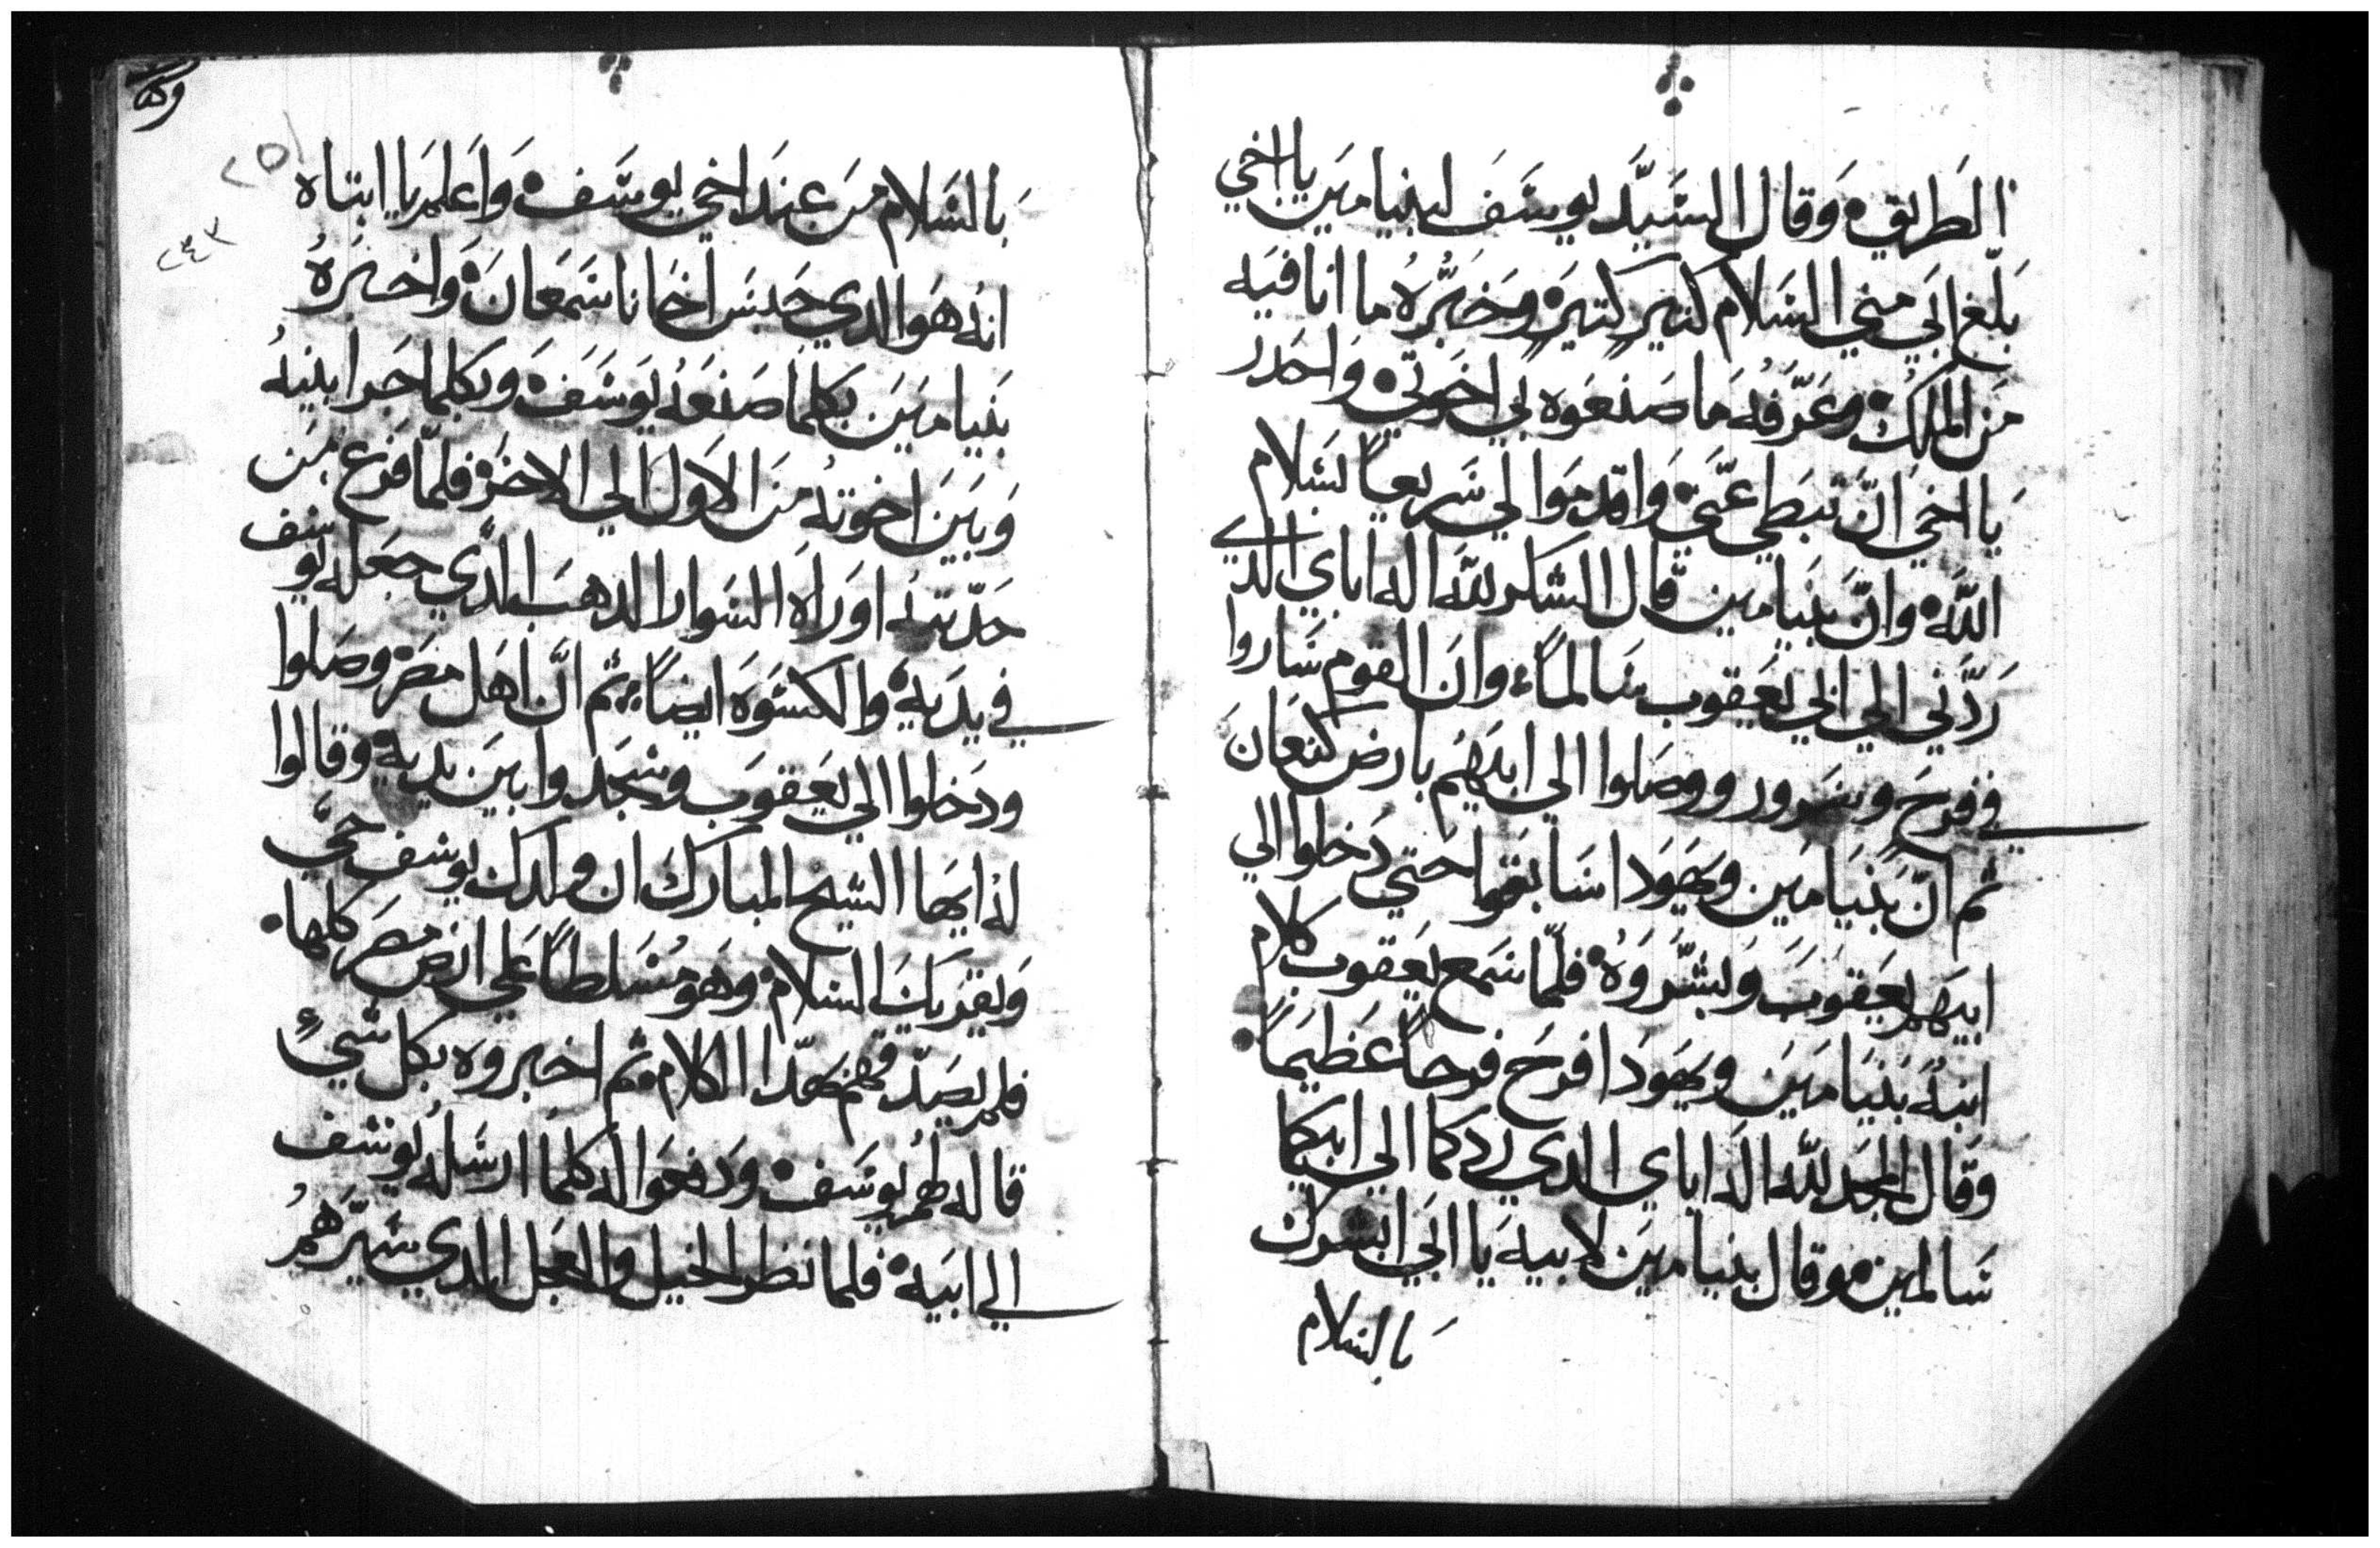 الطريق، وقال السيد يوسف لبنيامين يا اخي
بلغ ابي مني السلام كثير كتير، وخبره ما انا فيه
من الملك، وعرفه ما صنعوه بي اخوتي، واحدر
يا اخي ان تبطي عني، واقدموا الي سريعاً بسلام
الله، وان بنيامين قال الشكر لله اله اباي الدي
ردني الي ابي يعقوب سالماً، وان القوم ساروا
في فرح وسرور ووصلوا الي ابيهم بارض كنعان
ثم ان بنيامين ويهودا سابقوا حتي دخلوا الي
ابيهم يعقوب وبشروه، فلما سمع يعقوب كلام
ابنه بنيامين ويهودا فرح فرحاً عظيماً
وقال المجد لله اله اباي الدي ردكما الي ابيكما
سالمين، وقال بنيامين لابيه يا ابي ابشرك
بالسلام
بالسلام من عند اخي يوسف، واعلم يا ابتاه
انه هو الدي حبس اخانا سمعان، واخبره
بنيامين بكلما صنعه يوسف، وبكلما جرا بينه
وبين اخوته من الاول الي الاخر، فلما فرغ من
حديثه اوراه السوار الدهب الدي جعله يوسف
في يديه، والكسوه ايضاً، ثم ان اهل مصر وصلوا
ودخلوا الي يعقوب وسجدوا بين يديه، وقالوا
له ايها الشيخ المبارك ان ولدك يوسف حيّ
ويقريك السلام، وهو مسلطاً علي ارض مصر كلها.
فلم يصدقهم بهدا الكلام، ثم اخبروه بكل شيءٍ
قاله لهم يوسف، ودفعوا له كلما ارسله يوسف
الي ابيه، فلما نظر الخيل والعجل الدي سيرهم
٢٥١
٢٤٣